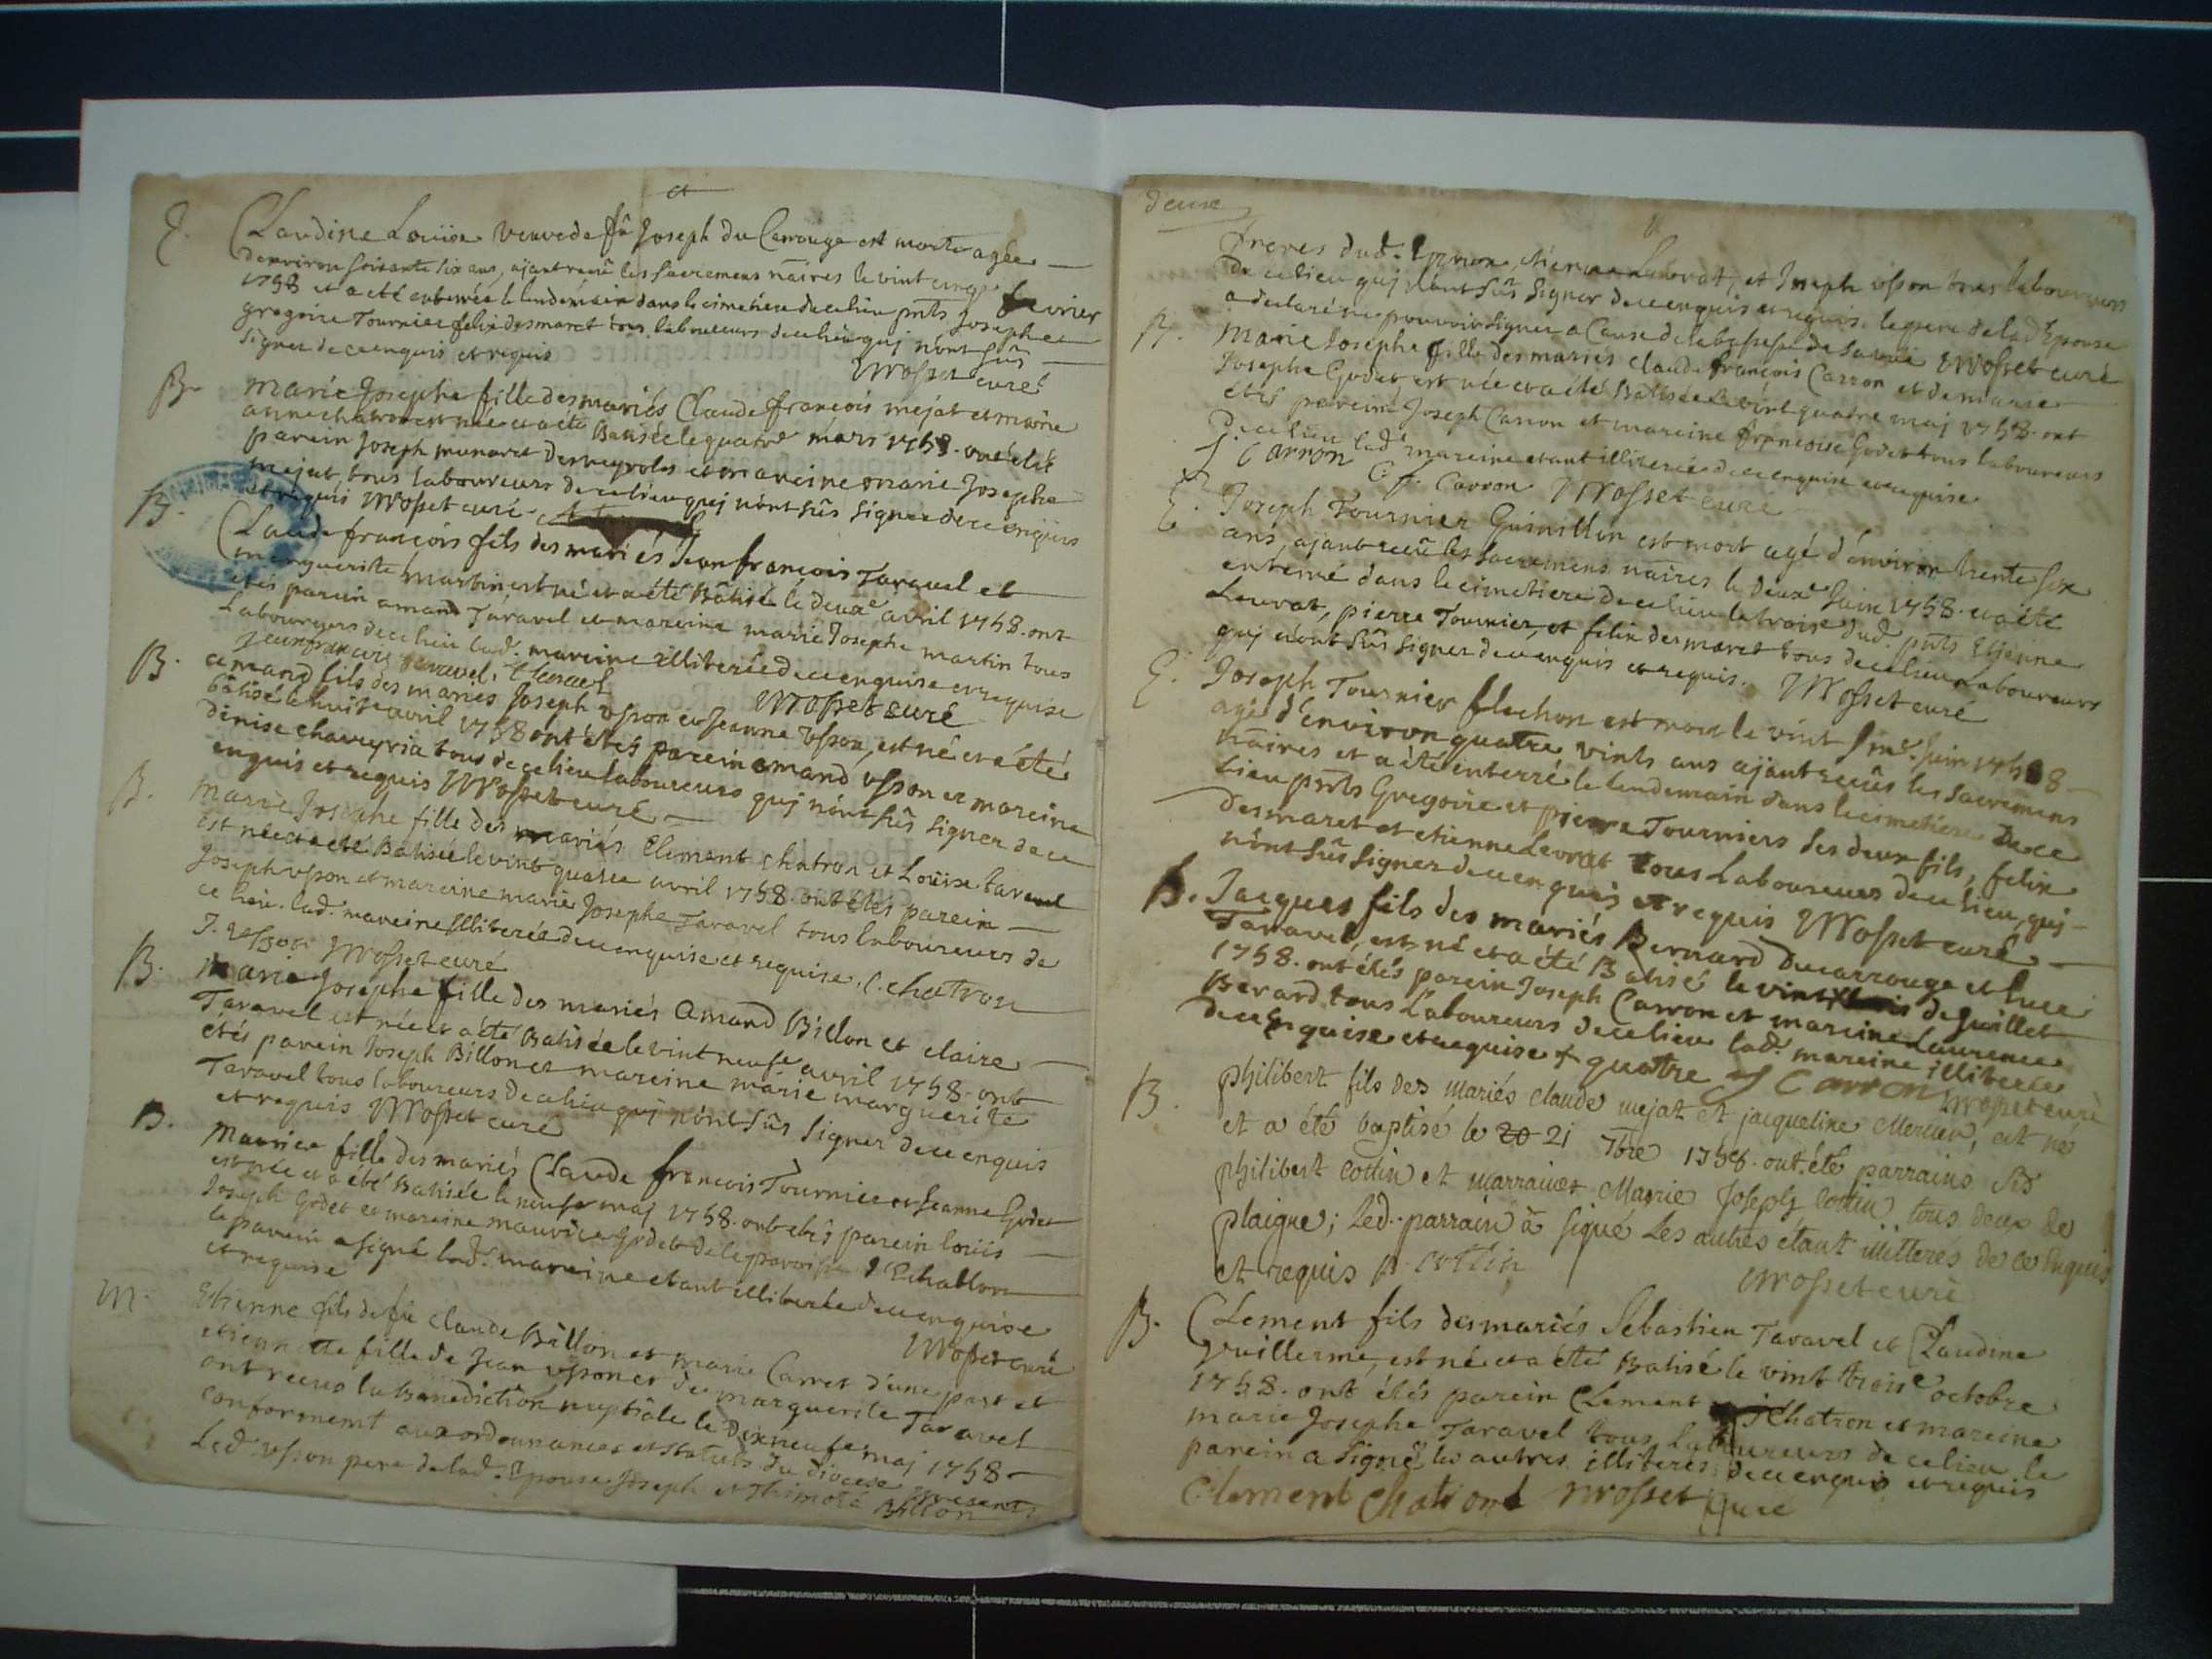 E. Claudine Loüise veuve de fû Joseph du Carrouge est morte agée
d'environ soixante six ans, ajant receu les sacremens n̄aires le vint cinqe fevrier
1758 et a eté enterrée le lendemain dans le cimetiere de ce lieu pn̄ts Josephe
gregoire Tournier felix desmaret tous laboureurs de ce lieu quj n'ont sûs
signer de ce enquis et requis Mosset curé
B. Marie Josephe fille des mariés Claude francois mejat et marie
anne chatron est née et a été Batisée le quatre mars 1758. ont étés
parein Joseph munaret desveyroles et mareine marie Josephe
mejat, tous laboureurs de ce lieu quj n'ont sûs signer de ce enquis
et requis Mosset curé
B. Claude francois fils des mariés Jean francois Taravel et
marguerite martin est né et a été Bâtisé le deuxe avril 1758. ont
etés parein amand Taravel et mareine marie Josephe martin tous
Laboureurs de ce lieu lad. mareine illiterée de ce enquise et requise
Jean francois taravel
Mosset curé
B. amand fils des mariés Joseph Usson et Jeanne Usson, est né et a été
bâtisé le huite avril 1758 ont étés parein amand Usson et mareine
dinise chaveyria tous de ce lieu laboureurs quj n'ont sûs signer de ce
enquis et requis Mosset curé
B. Marie Josephe fille des mariés Clement chatron et Loüise taravel
est née et a été Batisée le vint quatre avril 1758. ont étés parein
Joseph usson et mareine marie Josephe Taravel tous laboureurs de
ce lieu. lad. mareine illiterée de ce enquise et requise. C. chatron
J. usson Mosset curé
B. Marie Josephe fille des mariés Amand Billon et claire
Taravel est née et a été Batisée le vint neufe avril 1758. ont
étés parein Joseph Billon et mareine marie marguerite
Taravel tous laboureurs de ce lieu quj n'ont sûs signer de ce enquis
et requis Mosset curé
B. Maurice fille des mariés Claude francois Tournier et Jeanne Godet
est née et a été Batisée le neufe maj 1758. ont etés parein loüis
Joseph Godet et mareine maurice Godet de la paroisse d'Echallon
le parein a signé lad. mareine etant illiterée de ce enquise
et requise
Mosset curé
M. Etienne fils de fû claude Billon et marie Carret d'une part et
etiennette fille de Jean usson et de marguerite Taravel
ont receus la Benediction nuptiale le dix neufe maj 1758
conformement aux ordonnances et statuts du diocese presents
Led. usson pere de lad. Epouse Joseph et Thimoté Billon
deux
freres dud. Epoux, etienne Leuvrat, et Joseph usson tous laboureurs
de ce lieu quj n'ont sûs signer de ce enquis et requis. le pere de lad. Epouse
a declaré ne pouvoir signer a Cause de la bassesse de sa vuë Mosset curé
B. Marie Josephe fille des mariés claude francois Carron et de marie
Josephe Godet est née et a été Batisée le vint quatre maj 1758. ont
étés parein Joseph Carron et mareine francoise Godet tous laboureurs
de ce lieu lad. mareine etant illiterée de ce enquise et requise
J. Carron C. f. Carron Mosset curé
E. Joseph Tournier Guinillon est mort agé d'environ trente six
ans, ajant receu les sacremens n̄aires le deuxe Juin 1758. et a été
enterré dans le cimetiere de ce lieu le troise dud. pn̄ts Etienne
Leuvrat, pierre Tournier, et felix desmaret tous de ce lieu Laboureurs
quj n'ont sûs signer de ce enquis et requis. Mosset curé
E. Joseph Tournier flechon est mort le vint sme. Juin 1758
agé d'environ quatre vints ans ajant receûs les sacremens
n̄aires et a été enterré le lendemain dans le cimetiere de ce
Lieu pn̄ts Gregoire et pierre Tourniers ses deux fils, felix
desmaret et etienne Levrat tous Laboureurs de ce lieu, quj
n'ont sûs signer de ce enquis et requis Mosset curé
B. Jacques fils des mariés Bernard ducarrouge et luce
Taravel, est né et a été Batisé le vint de Juillet
1758. ont étés parein Joseph Carron et mareine Laurence
Berard tous Laboureurs de ce lieu lad. mareine illiterée
de ce enquise et requise + quatre J Carron Mosset curé
B. philibert fils des mariés claude mejat et jacqueline Mercier, est né
et a été baptisé le 20 21 7bre 1758. ont été parrains Sr
philibert cottin et marraine Marie Joseph cottin tous deux de
plaigne; Led. parrain a signé Les autres étant illitterés de ce enquis
et requis p. cottin
Mosset curé
B. Clement fils des mariés Sebastien Taravel et Claudine
Vuillerme, est né et a été Batisé le vint troise octobre
1758. ont étés parein Clement Chatron et mareine
marie Josephe Taravel tous laboureurs de ce lieu le
parein a signé les autres illiterés de ce enquis et requis
Clement Chatront Mosset Cure